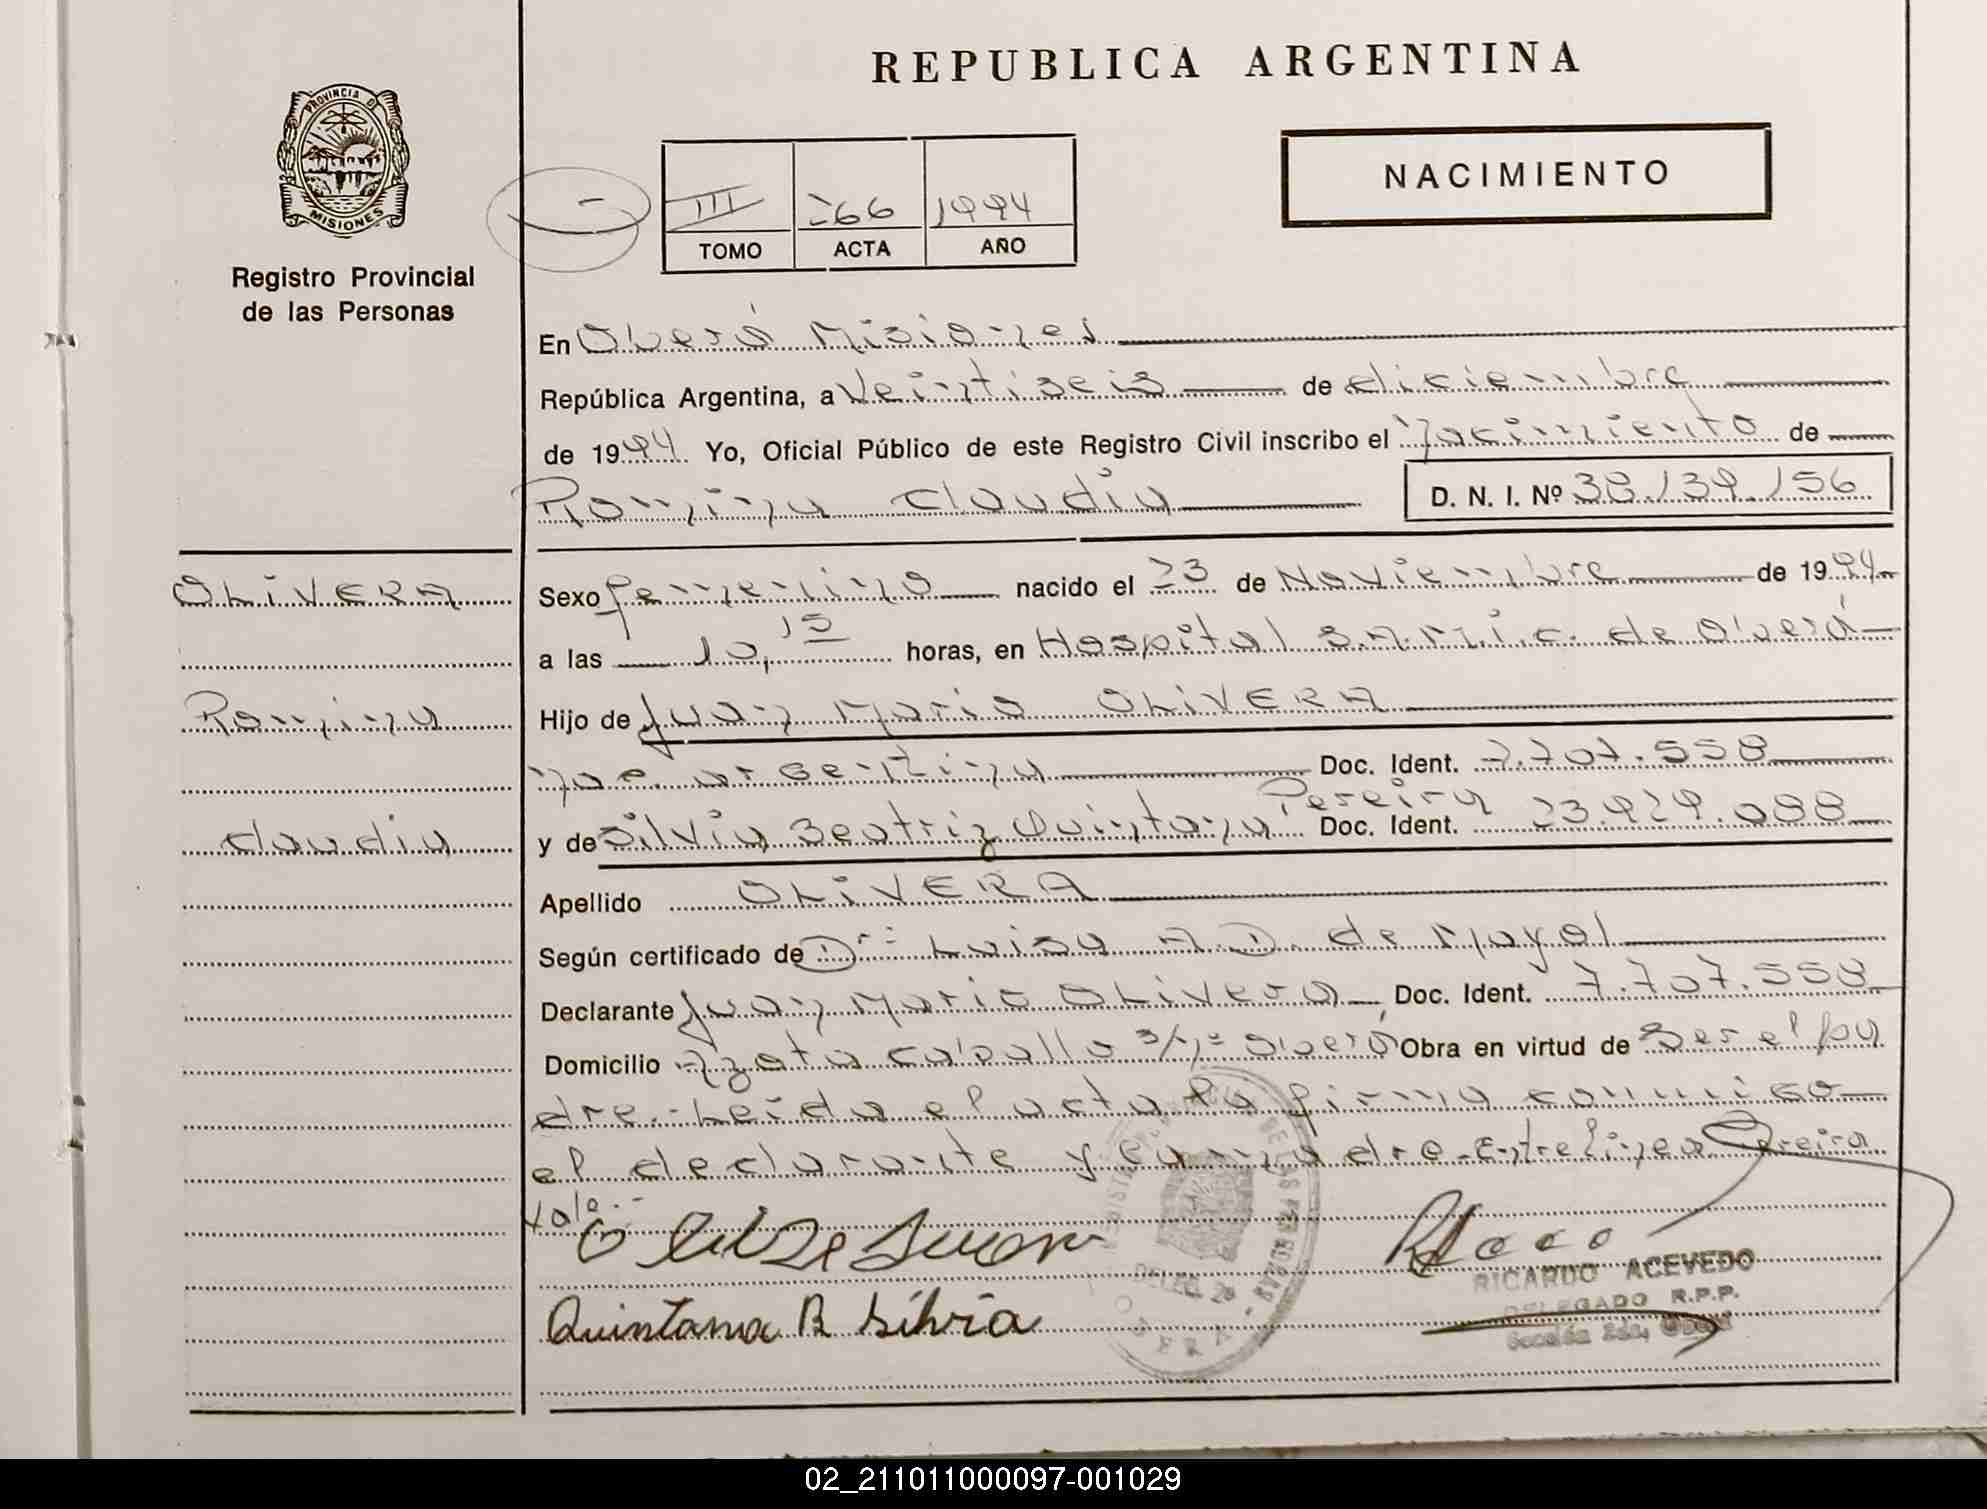 REPUBLICA ARGENTINA
PROVINCIA DE
MISIONES
Registro Provincial
de las Personas
NACIMIENTO
III 266 1994
TOMO ACTA AÑO
En Oberá Misiones
República Argentina, a Veintiseis de diciembre
de 1994 Yo, Oficial Público de este Registro Civil inscribo el Nacimiento de
Romina Claudia D. N. I. Nº 38.139.156
OLIVERA
Romina
Claudia
Sexo femenino nacido el 23 de Noviembre de 1994
a las 10,15 horas, en Hospital S.A.M.I.C. de Oberá
Hijo de Juan Mario OLIVERA
nac. argentina Doc. Ident. 7.707.558
Pereira
y de Silvia Beatriz Quintana Doc. Ident. 23.929.088
Apellido OLIVERA
Según certificado de Dra Luisa A. D. de Mayol
Declarante Juan Mario Olivera Doc. Ident. 7.707.558
Domicilio Azota caballo s/nº Oberá Obra en virtud de Ser el pa
dre.- Leída el acta la firma conmigo
el declarante y la madre.-Entrelinea Pereira
Vale.-
Quintana B Silvia
RICARDO ACEVEDO
DELEGADO R.P.P.
Sección 2da, Oberá
02_211011000097-001029